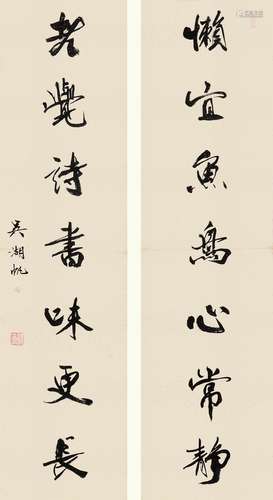 懶宜魚鳥心常靜
老覺詩書味更長
吳湖帆